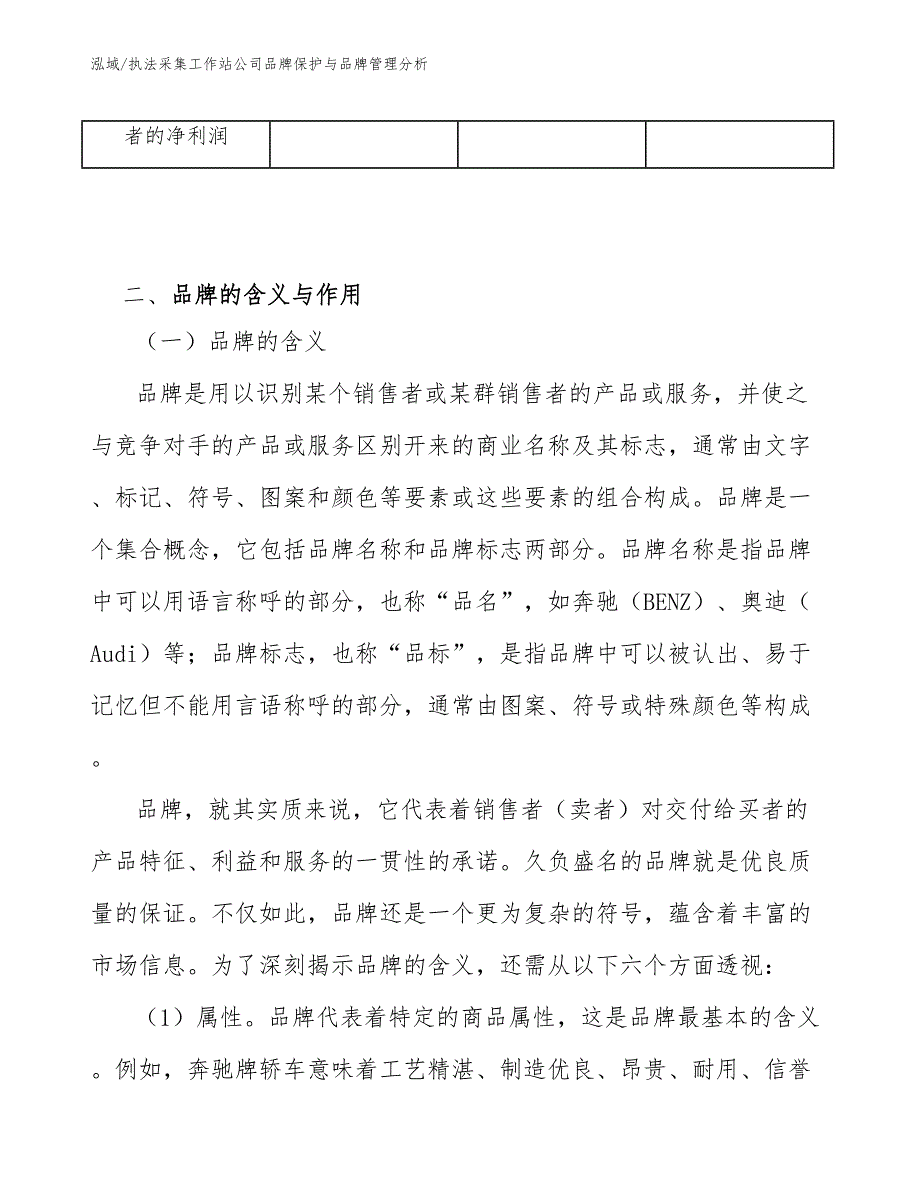 泓域/执法采集工作站公司品牌保护与品牌管理分析
者的净利润
二、品牌的含义与作用
（一）品牌的含义
品牌是用以识别某个销售者或某群销售者的产品或服务，并使之
与竞争对手的产品或服务区别开来的商业名称及其标志，通常由文字
、标记、符号、图案和颜色等要素或这些要素的组合构成。品牌是一
个集合概念，它包括品牌名称和品牌标志两部分。品牌名称是指品牌
中可以用语言称呼的部分，也称“品名”，如奔驰（BENZ）、奥迪（
Audi）等；品牌标志，也称“品标”，是指品牌中可以被认出、易于
记忆但不能用言语称呼的部分，通常由图案、符号或特殊颜色等构成
。
品牌，就其实质来说，它代表着销售者（卖者）对交付给买者的
产品特征、利益和服务的一贯性的承诺。久负盛名的品牌就是优良质
量的保证。不仅如此，品牌还是一个更为复杂的符号，蕴含着丰富的
市场信息。为了深刻揭示品牌的含义，还需从以下六个方面透视：
（1）属性。品牌代表着特定的商品属性，这是品牌最基本的含义
。例如，奔驰牌轿车意味着工艺精湛、制造优良、昂贵、耐用、信誉